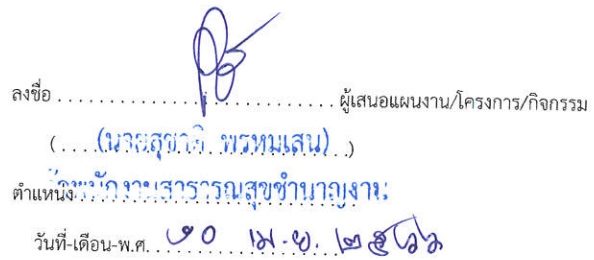 ลงชื่อ . . . . . . . . . . . . . . . . . . . . . . . . . . . . ผู้เสนอแผนงาน/โครงการ/กิจกรรม
( . . . . (นายสุชาติ พรหมเสน) . .)
ตำแหน่ง เจ้าพนักงานสาธารณสุขชำนาญงาน
วันที่-เดือน-พ.ศ. ๒๐ เม.ย. ๒๕๖๖